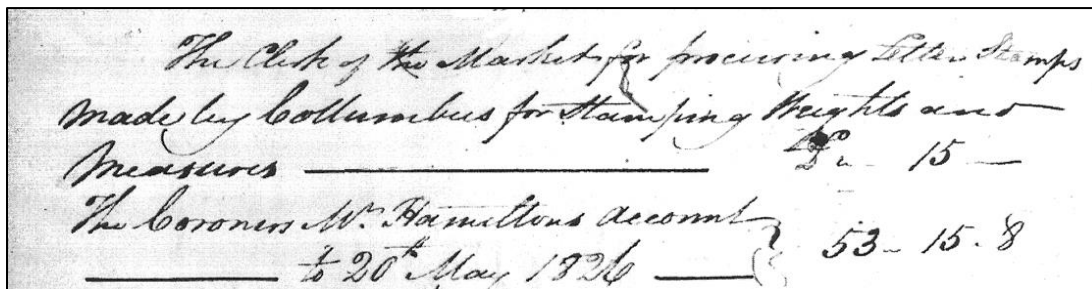 The Clerk of the Market for procuring Letter Stamps
made by Collumbus for Stamping Weights and
Measures ——— £ " - 15 —
The Coroners Mr. Hamiltons account
——— to 20th May 1826 ——— } 53 - 15 - 8